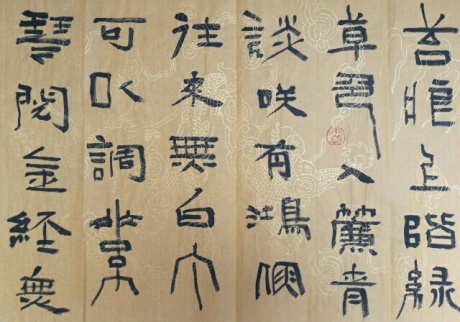 苔痕上階綠
草色入簾青
談咲有鴻儒
往來無白丁
可以調素
琴閱金經無